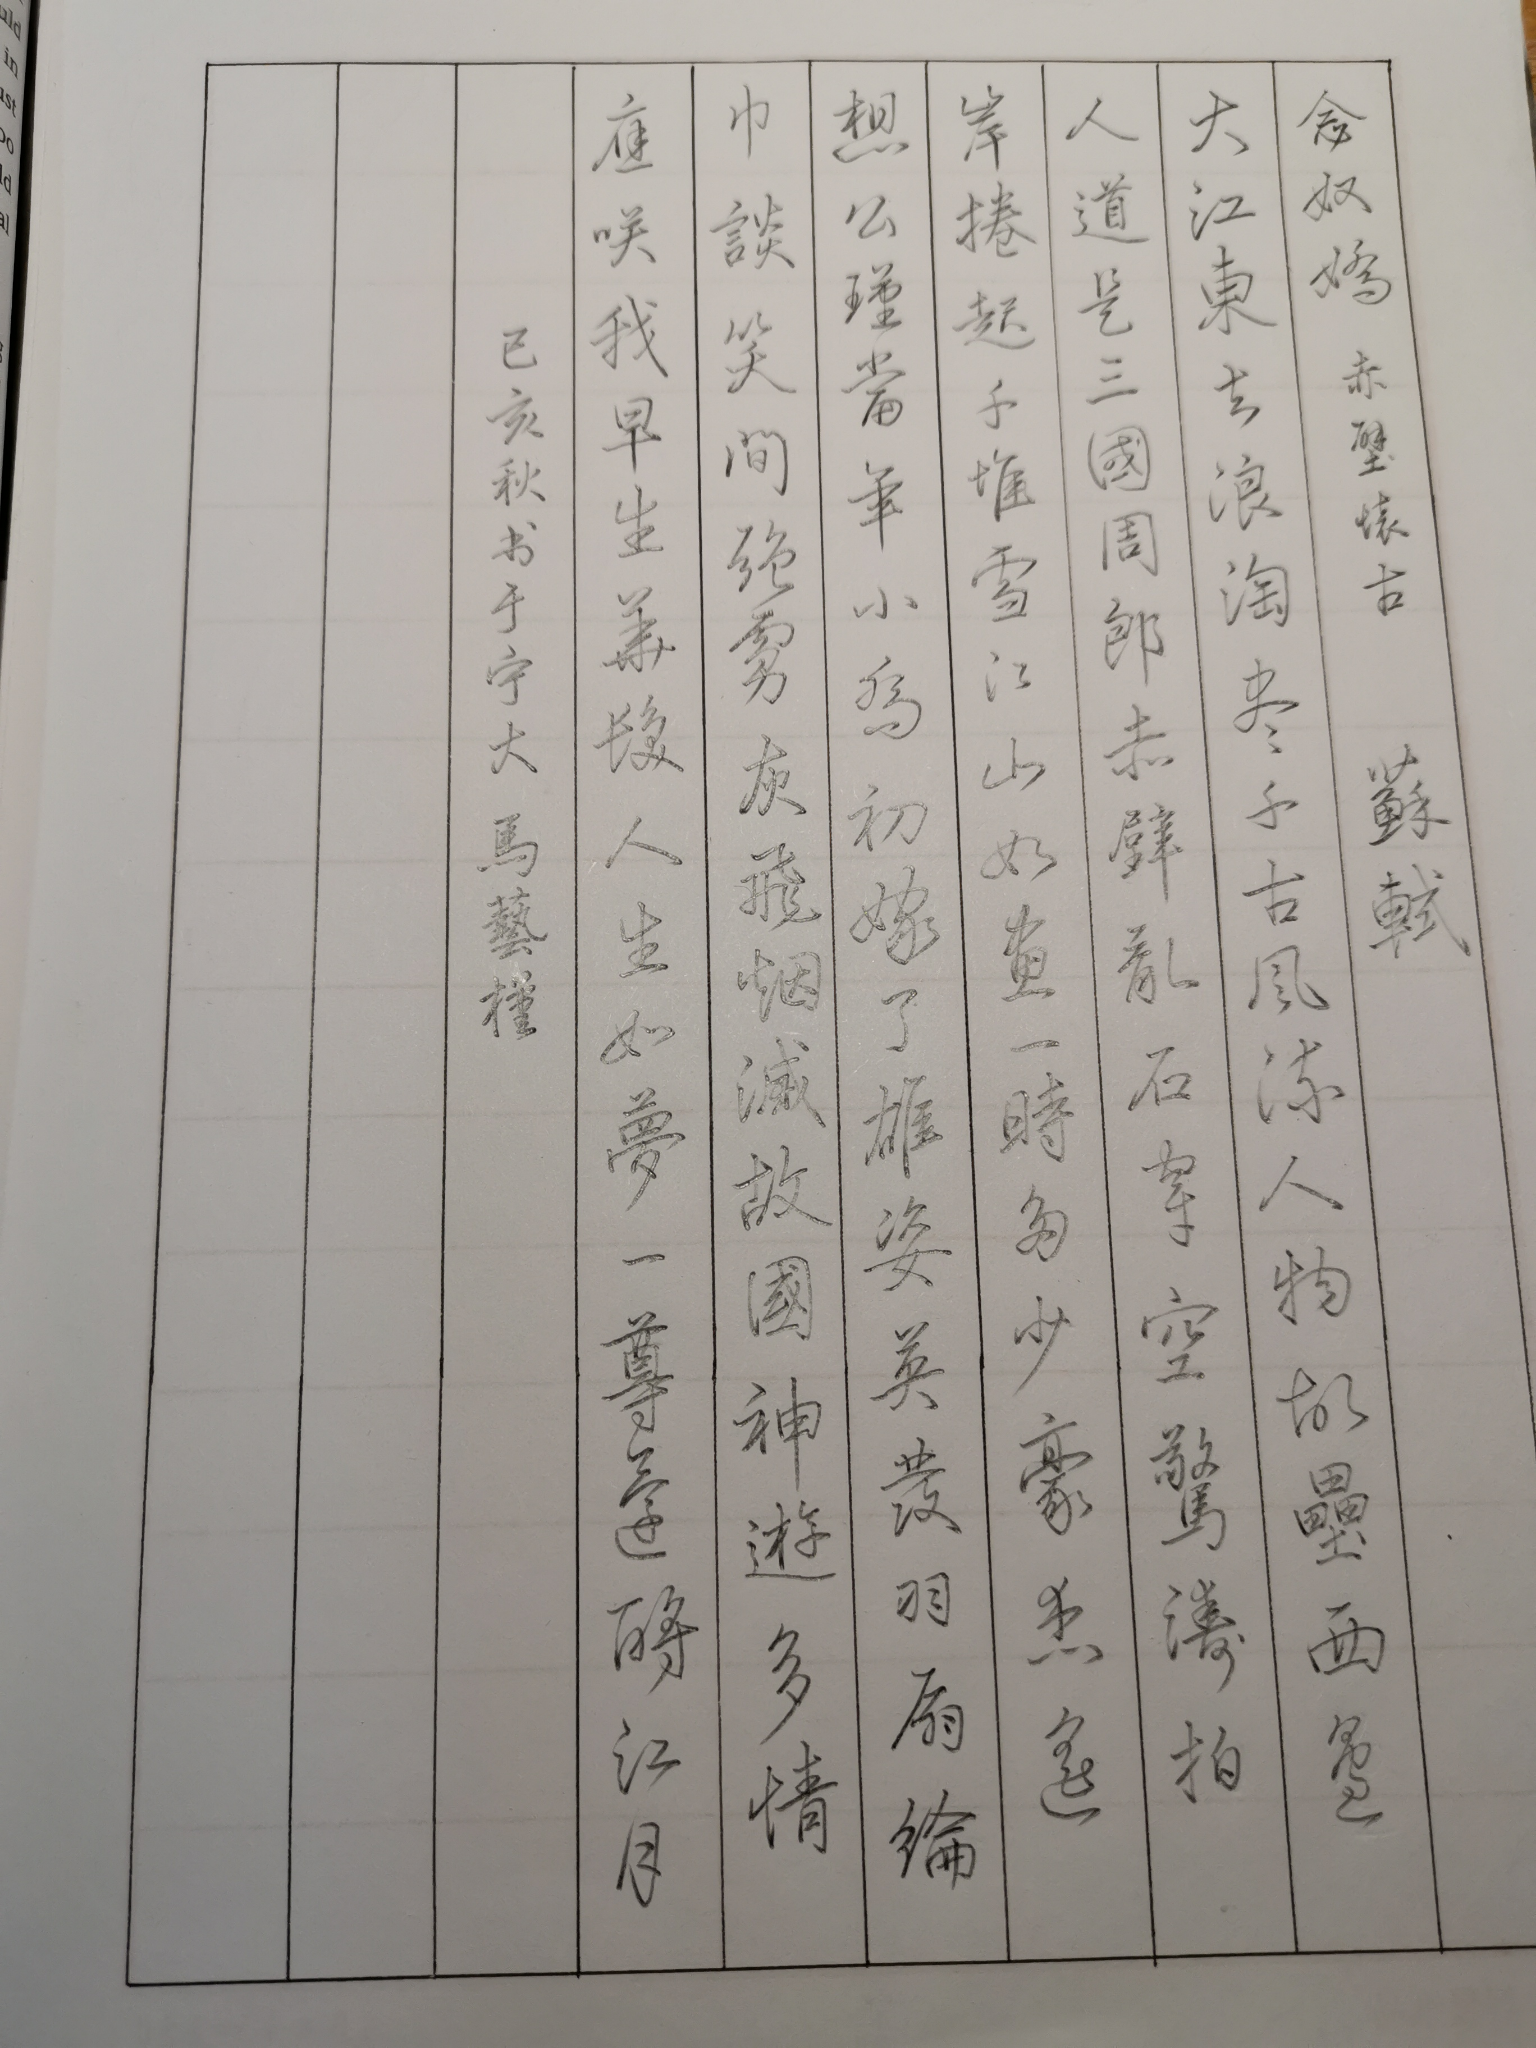 念奴嬌 赤壁懷古 蘇軾
大江東去浪淘尽千古風流人物故壘西邊
人道是三國周郎赤壁亂石穿空驚濤拍
岸捲起千堆雪江山如畫一時多少豪杰遙
想公瑾當年小喬初嫁了雄姿英發羽扇綸
巾談笑間強虜灰飛烟滅故國神遊多情
應咲我早生華髮人生如夢一尊還酹江月
己亥秋书于宁大 馬藝